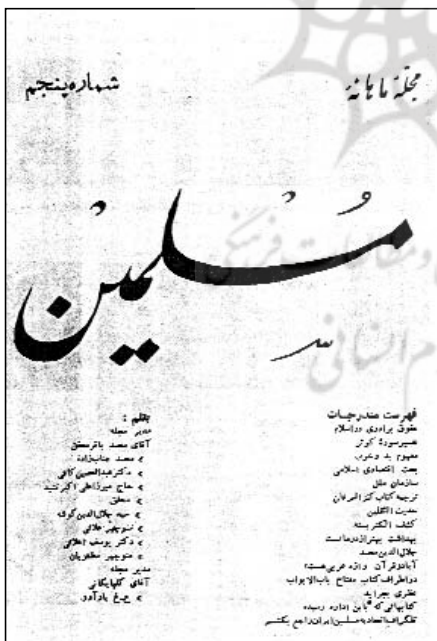 مجلهٔ ماهانهٔ
شماره پنجم
مسلمین
فهرست مندرجات
حقوق برادری در اسلام
تفسیر سورهٔ کوثر
مفهوم بد و خوب
بحث اقتصادی اسلامی
سازمان ملل
ترجمه کتاب کنز العرفان
حدیث الثقلین
کشف الکتر بسته
بهداشت بهتر از درمانست
جلال‌الدین محمد
آیا در قرآن واژه غیر عربی هست؟
در اطراف کتاب مفتاح باب الابواب
نظری بجراید
کتابهائی که باین اداره رسیده
تلگراف اتحادیه مسلمین ایران راجع
بقلم :
مدیر مجله
آقای محمد باقر محقق
» محمد جناب‌زاده
» دکتر عبدالحسین کافی
» حاج میرزا علی اکبر
» محقق
» سید جلال‌الدین
» منوچهر
» دکتر یوسف
» منوچهر مظفریان
مدیر مجله
آقای گلپایگانی